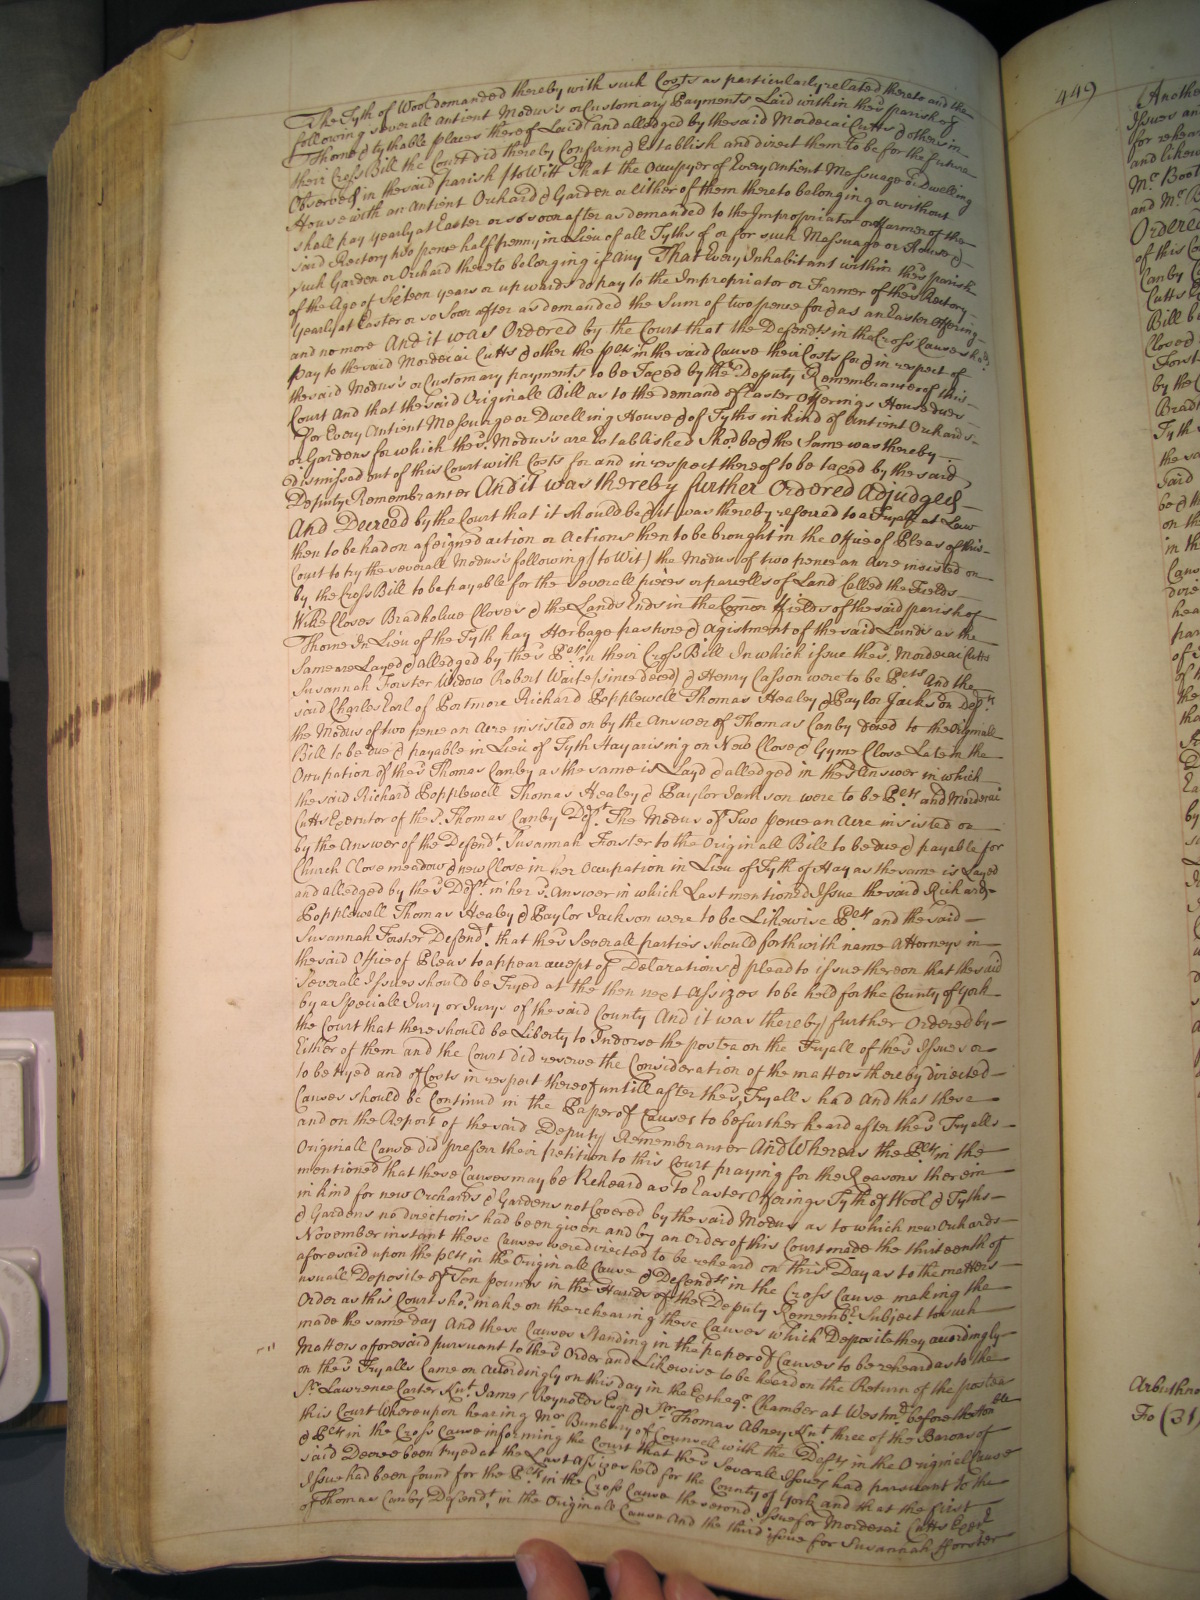 The Tyth of Wool demanded thereby with such Costs as particularly related thereto and the
following severall Antient Modus's or Customary Payments Laid within the sd parish of
Thorne & tythable places thereof Laid and alledged by the said Mordecai Cutts & others in
their Cross Bill the Court did thereby Confirm & Establish and direct them to be for the future
Observed in the said parish (to Witt) That the Occupyer of Every Antient Messuage or Dwelling
House with an Antient Orchard & Garden or Either of them thereto belonging or without
shall pay yearly at Easter or so soon after as demanded to the Impropriator or ffarmer of the
said Rectory two pence half penny in Lieu of all Tyths of or for such Messuage or House &
such Garden or Orchard thereto belonging if any That Every Inhabitant within the sd parish
of the Age of Sixteen years or upwards do pay to the Impropriator or Farmer of the sd Rectory
yearly at Easter or so soon after as demanded the Sum of two pence for & as an Easter Offering
and no more And it was Ordered by the Court that the Defendts in the Cross Cause sho'd
pay to the said Mordecai Cutts & other the pets in the said Cause their Costs for & in respect of
the said Modus's or Customary payments to be Taxed by the Deputy Remembrancer of this
Court And that the said Originall Bill as to the demand of Easter Offerings House dues
for Every Antient Messuage or Dwelling House & of Tyths in kind of Antient Orchards
or Gardens for which the sd Modus's are Established Sho'd be & the Same was thereby
dismissed out of this Court with Costs for and in respect thereof to be taxed by the said
Deputy Remembrancer And it was thereby further Ordered Adjudged
And Decreed by the Court that it should be & it was thereby referred to a Tryall at Law
then to be had on a feigned action or Actions then to be brought in the Office of Pleas of this
Court to try the severall Modus's following (to Wit) the Modus of two pence an Acre insisted on
by the Cross Bill to be payable for the severall pieces or parcells of Land Called the Fields
Wike Closes Bradholme Closes & the Lands Ends in the Comon ffields of the said parish of
Thorne In Lieu of the Tyth hay Herbage pasture & Agistment of the said Lands as the
Same are Layed & alledged by the sd Pets in their Cross Bill In which issue the sd Mordecai Cutts
Susannah Forster Widow Robert Waite (since deced) & Henry Casson were to be Pets And the
said Charles Earl of Portmore Richard Popplewell Thomas Healey & Paylor Jackson Defts
the Modus of two pence an Acre insisted on by the Answer of Thomas Canby deced to the Originall
Bill to be due & payable in Lieu of Tyth Hay arising on New Close & Gyme Close Late in the
Occupation of the sd Thomas Canby as the same is Layd & alledged in the sd Answer in which
the said Richard Popplewell Thomas Healey & Paylor Jackson were to be Pets and Mordecai
Cutts Executor of the sd Thomas Canby Deft The Modus of Two pence an Acre insisted on
by the Answer of the Defendt Susannah Forster to the Originall Bill to be due & payable for
Church Close meadow & new Close in her Occupation in Lieu of Tyth of Hay as the same is Layed
and alledged by the sd Deft in her sd Answer in which Last mentioned Issue the said Richard
Popplewell Thomas Healey & Paylor Jackson were to be Likewise Pets and the said
Susannah Forster Defendt that the sd Severall parties should forthwith name Attorneys in
the said Office of Pleas to appear accept of Declarations & plead to issue thereon that the said
Severall Issues should be Tryed at the then next Assizes to be held for the County of York
by a Speciall Jury or Jurys of the said County And it was thereby further Ordered by
the Court that there should be Liberty to Indorse the postea on the Tryall of the sd Issues or
Either of them and the Court did reserve the Consideration of the matters thereby directed
to be tryed and of Costs in respect thereof untill after the sd Tryalls had And that these
Causes should be Continued in the Paper of Causes to be further heard after the sd Tryalls
and on the Report of the said Deputy Remembrancer And Whereas the Pets in the
Originall Cause did preferr their petition to this Court praying for the Reasons therein
mentioned that these Causes may be Reheard as to Easter Offerings Tyth of Wool & Tyths
in kind for new Orchards & Gardens not Covered by the said Modus as to which new Orchards
& Gardens no directions had been given and by an Order of this Court made the thirteenth of
November instant these Causes were directed to be reheard on this Day as to the matters
aforesaid upon the pets in the Originall Cause & Defendts in the Cross Cause making the
usuall Deposite of Ten pounds in the Hands of the Deputy Remembr Subject to such
Order as this Court sho'd make on the rehearing these Causes which Deposite they accordingly
made the same day And these Causes Standing in the paper of Causes to be reheard as to the
Matters aforesaid pursuant to the sd Order and Likewise to be heard on the Return of the postea
on the sd Tryalls Came on Accordingly on this day in the Excheqr Chamber at Westmr before the Honble
Sr Lawrence Carter Knt James Reynolds Esqr & Sr Thomas Abney Knt three of the Barons of
this Court Whereupon hearing Mr Bunbury of Councell with the Defts in the Original Cause
& Pets in the Cross Cause informing the Court that the sd Severall Issues had pursuant to the
said Decree been tryed at the Last Assizes held for the County of York and that the first
Issue had been found for the Pets in the Cross Cause the second Issue for Mordecai Cutts Exer
of Thomas Canby Defendt in the Originall Cause And the third issue for Susannah fforster
449
Anothe
Issues an
for rehear
and likew
Mr Boot
and Mr B
Ordered
of this Co
Canby
Cutts E
Bill b
Closes
Forst
by the C
Brad
Tyth
the sa
said
be & th
on th
in th
Caus
dire
hea
par
of
Arbuthno
Fo (31)